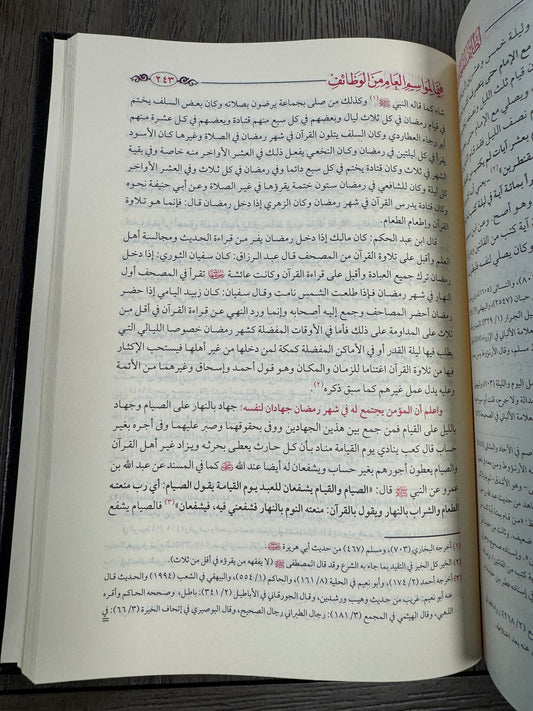 فيما لمواسم العام من الوظائف
٢٤٣
شاء كما قاله النبي ﷺ(١) وكذلك من صلى بجماعة يرضون بصلاته وكان بعض السلف يختم
في قيام رمضان في كل ثلاث ليال وبعضهم في كل سبع منهم قتادة وبعضهم في كل عشرة منهم
أبو رجاء العطاردي وكان السلف يتلون القرآن في شهر رمضان في الصلاة وغيرها كان الأسود
يقرأ في كل ليلتين في رمضان وكان النخعي يفعل ذلك في العشر الأواخر منه خاصة وفي بقية
الشهر في ثلاث وكان قتادة يختم في كل سبع دائما وفي رمضان في كل ثلاث وفي العشر الأواخر
كل ليلة وكان للشافعي في رمضان ستون ختمة يقرؤها في غير الصلاة وعن أبي حنيفة نحوه
وكان قتادة يدرس القرآن في شهر رمضان وكان الزهري إذا دخل رمضان قال: فإنما هو تلاوة
القرآن وإطعام الطعام.
قال ابن عبد الحكم: كان مالك إذا دخل رمضان يفر من قراءة الحديث ومجالسة أهل
العلم وأقبل على تلاوة القرآن من المصحف قال عبد الرزاق: كان سفيان الثوري: إذا دخل
رمضان ترك جميع العبادة وأقبل على قراءة القرآن وكانت عائشة تقرأ في المصحف أول
النهار في شهر رمضان فإذا طلعت الشمس نامت وقال سفيان: كان زبيد اليامي إذا حضر
رمضان أحضر المصاحف وجمع إليه أصحابه وإنما ورد النهي عن قراءة القرآن في أقل من
ثلاث على المداومة على ذلك فأما في الأوقات المفضلة كشهر رمضان خصوصا الليالي التي
يطلب فيها ليلة القدر أو في الأماكن المفضلة كمكة لمن دخلها من غير أهلها فيستحب الإكثار
فيها من تلاوة القرآن اغتناما للزمان والمكان وهو قول أحمد وإسحاق وغيرهما من الأئمة
وعليه يدل عمل غيرهم كما سبق ذكره(٢).
واعلم أن المؤمن يجتمع له في شهر رمضان جهادان لنفسه: جهاد بالنهار على الصيام وجهاد
بالليل على القيام فمن جمع بين هذين الجهادين ووفى بحقوقهما وصبر عليهما وفى أجره بغير
حساب قال كعب ينادي يوم القيامة مناد بأن كل حارث يعطى بحرثه ويزاد غير أهل القرآن
والصيام يعطون أجورهم بغير حساب ويشفعان له أيضا عند الله كما في المسند عن عبد الله بن
عمرو عن النبي ﷺ قال: «الصيام والقيام يشفعان للعبد يوم القيامة يقول الصيام: أي رب منعته
الطعام والشراب بالنهار ويقول بالقرآن: منعته النوم بالنهار فشفعني فيه، فيشفعان»(٣) فالصيام يشفع
(١) أخرجه البخاري (٧٠٣)، ومسلم (٤٦٧) من حديث أبي هريرة
(٢) الخير كل الخير في التقيد بما جاء به الشرع وقد قال المصطفى ﷺ (لا يفقهه من يقرؤه في أقل من ثلاث).
(٣) أخرجه أحمد (٢/ ١٧٤)، وأبو نعيم في الحلية (٨/ ١٦١)، والحاكم (١/ ٥٥٤)، والبيهقي في الشعب (١٩٩٤) والحديث قال
عنه أبو نعيم: غريب من حديث وهيب ورشدين، وقال الجورقاني في الأباطيل (٢/ ٣٤١): باطل، وصححه الحاكم وأقره
الذهبي، وقال الهيثمي في المجمع (٣/ ١٨١): رجال الطبراني رجال الصحيح، وقال البوصيري في إتحاف الخيرة (٣/ ٦٦): في